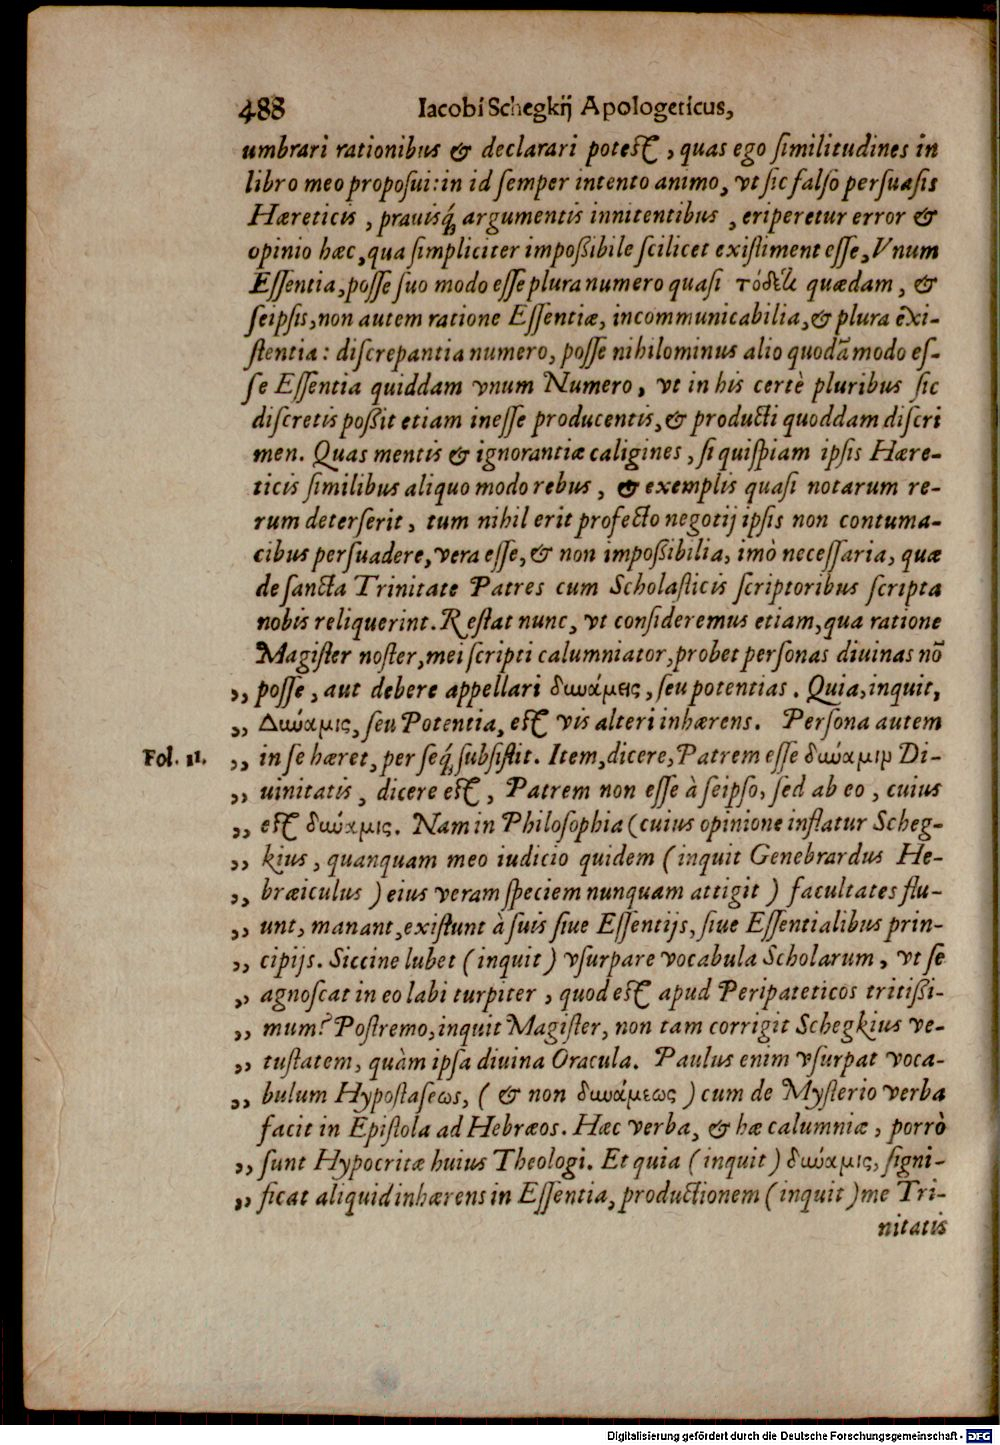 488 Iacobi Schegkij Apologeticus,
umbrari rationibus & declarari potest, quas ego similitudines in
libro meo proposui: in id semper intento animo, vt sic falso persuasis
Hæreticis, prauisq́; argumentis innitentibus, eriperetur error &
opinio hæc, qua simpliciter impoßibile scilicet existiment esse, Vnum
Essentia, posse suo modo esse plura numero quasi τόδε τι quædam, &
seipsis, non autem ratione Essentiæ, incommunicabilia, & plura exi-
stentia: discrepantia numero, posse nihilominus alio quodā modo es-
se Essentia quiddam vnum Numero, vt in his certè pluribus sic
discretis poßit etiam inesse producentis, & producti quoddam discri
men. Quas mentis & ignorantiæ caligines, si quispiam ipsis Hære-
ticis similibus aliquo modo rebus, & exemplis quasi notarum re-
rum deterserit, tum nihil erit profecto negotij ipsis non contuma-
cibus persuadere, vera esse, & non impoßibilia, imò necessaria, quæ
de sancta Trinitate Patres cum Scholasticis scriptoribus scripta
nobis reliquerint. Restat nunc, vt consideremus etiam, qua ratione
Magister noster, mei scripti calumniator, probet personas diuinas nō
„ posse, aut debere appellari δυνάμεις, seu potentias. Quia, inquit,
„ Δύναμις, seu Potentia, est vis alteri inhærens. Persona autem
Fol. 11. „ in se hæret, per seq́; subsistit. Item, dicere, Patrem esse δύναμιν Di-
„ uinitatis, dicere est, Patrem non esse à seipso, sed ab eo, cuius
„ est δύναμις. Nam in Philosophia (cuius opinione inflatur Scheg-
„ kius, quanquam meo iudicio quidem (inquit Genebrardus He-
„ bræiculus) eius veram speciem nunquam attigit) facultates flu-
„ unt, manant, existunt à suis siue Essentijs, siue Essentialibus prin-
„ cipijs. Siccine lubet (inquit) vsurpare vocabula Scholarum, vt se
„ agnoscat in eo labi turpiter, quod est apud Peripateticos tritißi-
„ mum? Postremo, inquit Magister, non tam corrigit Schegkius ve-
„ tustatem, quàm ipsa diuina Oracula. Paulus enim vsurpat voca-
„ bulum Hypostaseως, (& non δυνάμεως) cum de Mysterio verba
facit in Epistola ad Hebræos. Hæc verba, & hæ calumniæ, porrò
„ sunt Hypocritæ huius Theologi. Et quia (inquit) δύναμις, signi-
„ ficat aliquid inhærens in Essentia, productionem (inquit) me Tri-
nitatis
Digitalisierung gefördert durch die Deutsche Forschungsgemeinschaft - DFG